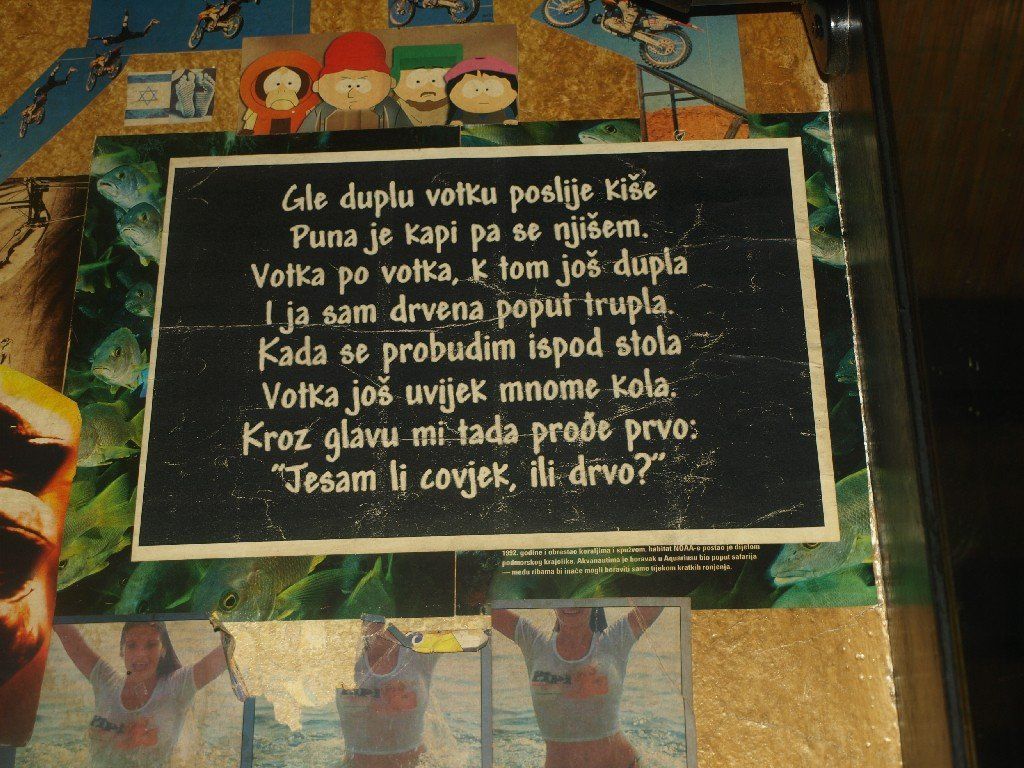 Gle duplu votku poslije kiše
Puna je kapi pa se njišem.
Votka po votka, k tom još dupla
I ja sam drvena poput trupla.
Kada se probudim ispod stola
Votka još uvijek mnome kola.
Kroz glavu mi tada prođe prvo:
"Jesam li covjek, ili drvo?"
1992. godine i obrastao koraljima i spužvom, habitat NOAA-e postao je dijelom
podmorskog krajolika. Akvanautima je boravak u Aquariusu bio poput safarija
— među ribama bi inače mogli boraviti samo tijekom kratkih ronjenja.